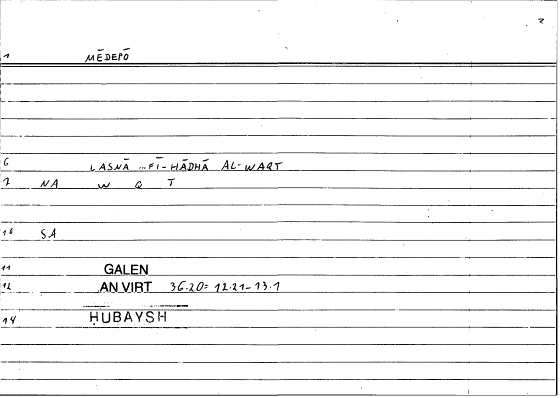 2
1 MĒDEPŌ
6 LASNĀ ...FĪ-HĀDHĀ AL-WAQT
7 NA W Q T
10 SA
11 GALEN
12 AN VIRT 36.20= 12.21-13.1
14 ḤUBAYSH